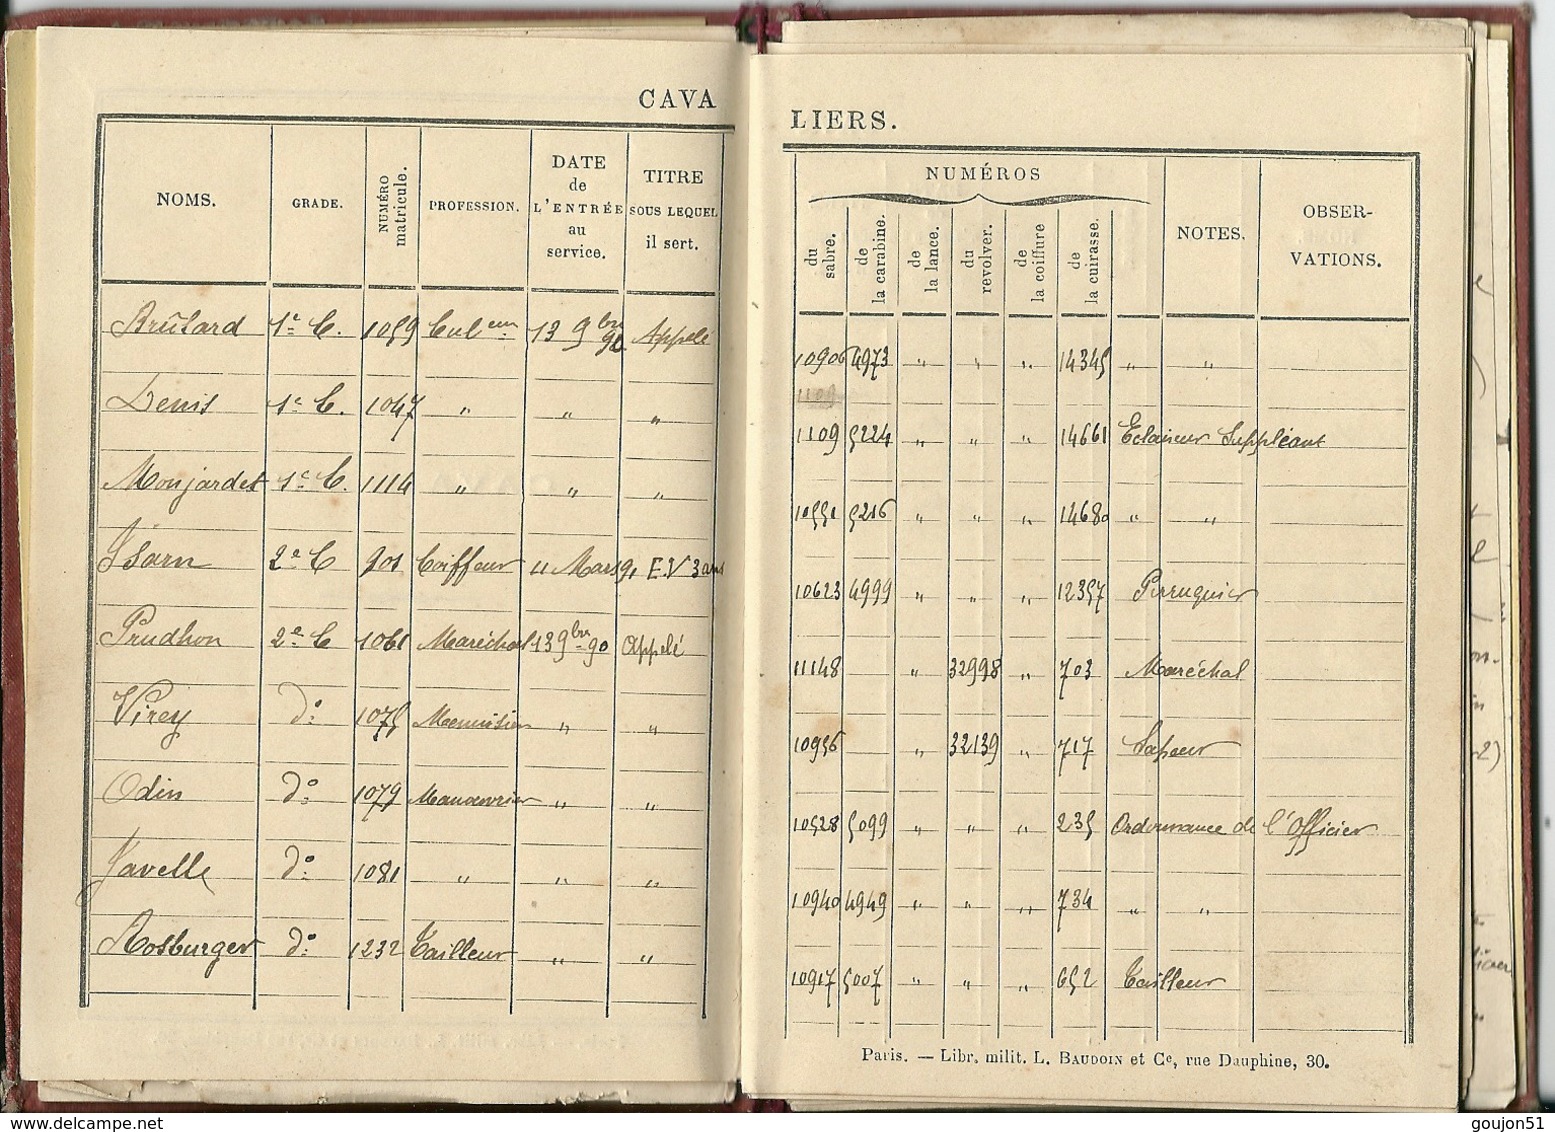 CAVALIERS.
NOMS. GRADE. NUMÉRO matricule. PROFESSION. DATE de L'ENTRÉE au service. TITRE SOUS LEQUEL il sert. NUMÉROS du sabre. de la carabine. de la lance. du revolver. de la coiffure de la cuirasse. NOTES. OBSERVATIONS.
Brûlard 1e C. 1059 Culeur 13 9bre 90 Appelé 10906 4973 " " " 14345 " "
1109
Denis 1e C. 1047 " " " 1109 5224 " " " 14661 Eclaireur Suppléant
Monjardet 1e C. 1114 " " " 10551 5216 " " " 14680 " "
Isarn 2e C 901 Coiffeur 11 Mars 91 E.V 3 ans 10623 4999 " " " 12357 Perruquier
Prudhon 2e C 1061 Maréchal 13 9bre 90 Appelé 11148 " 32998 " 703 Maréchal
Virey do 1075 Menuisier " " 10956 " 32139 " 717 Sapeur
Odin do 1079 Manoeuvrier " " 10528 5099 " " " 235 Ordonnance de l'Officier
Javelle do 1081 " " " 10940 4949 " " " 734 " "
Rosburger do 1232 Tailleur " " 10917 5007 " " " 652 Tailleur
Paris. — Libr. milit. L. BAUDOIN et Ce, rue Dauphine, 30.
www.delcampe.net
goujon51